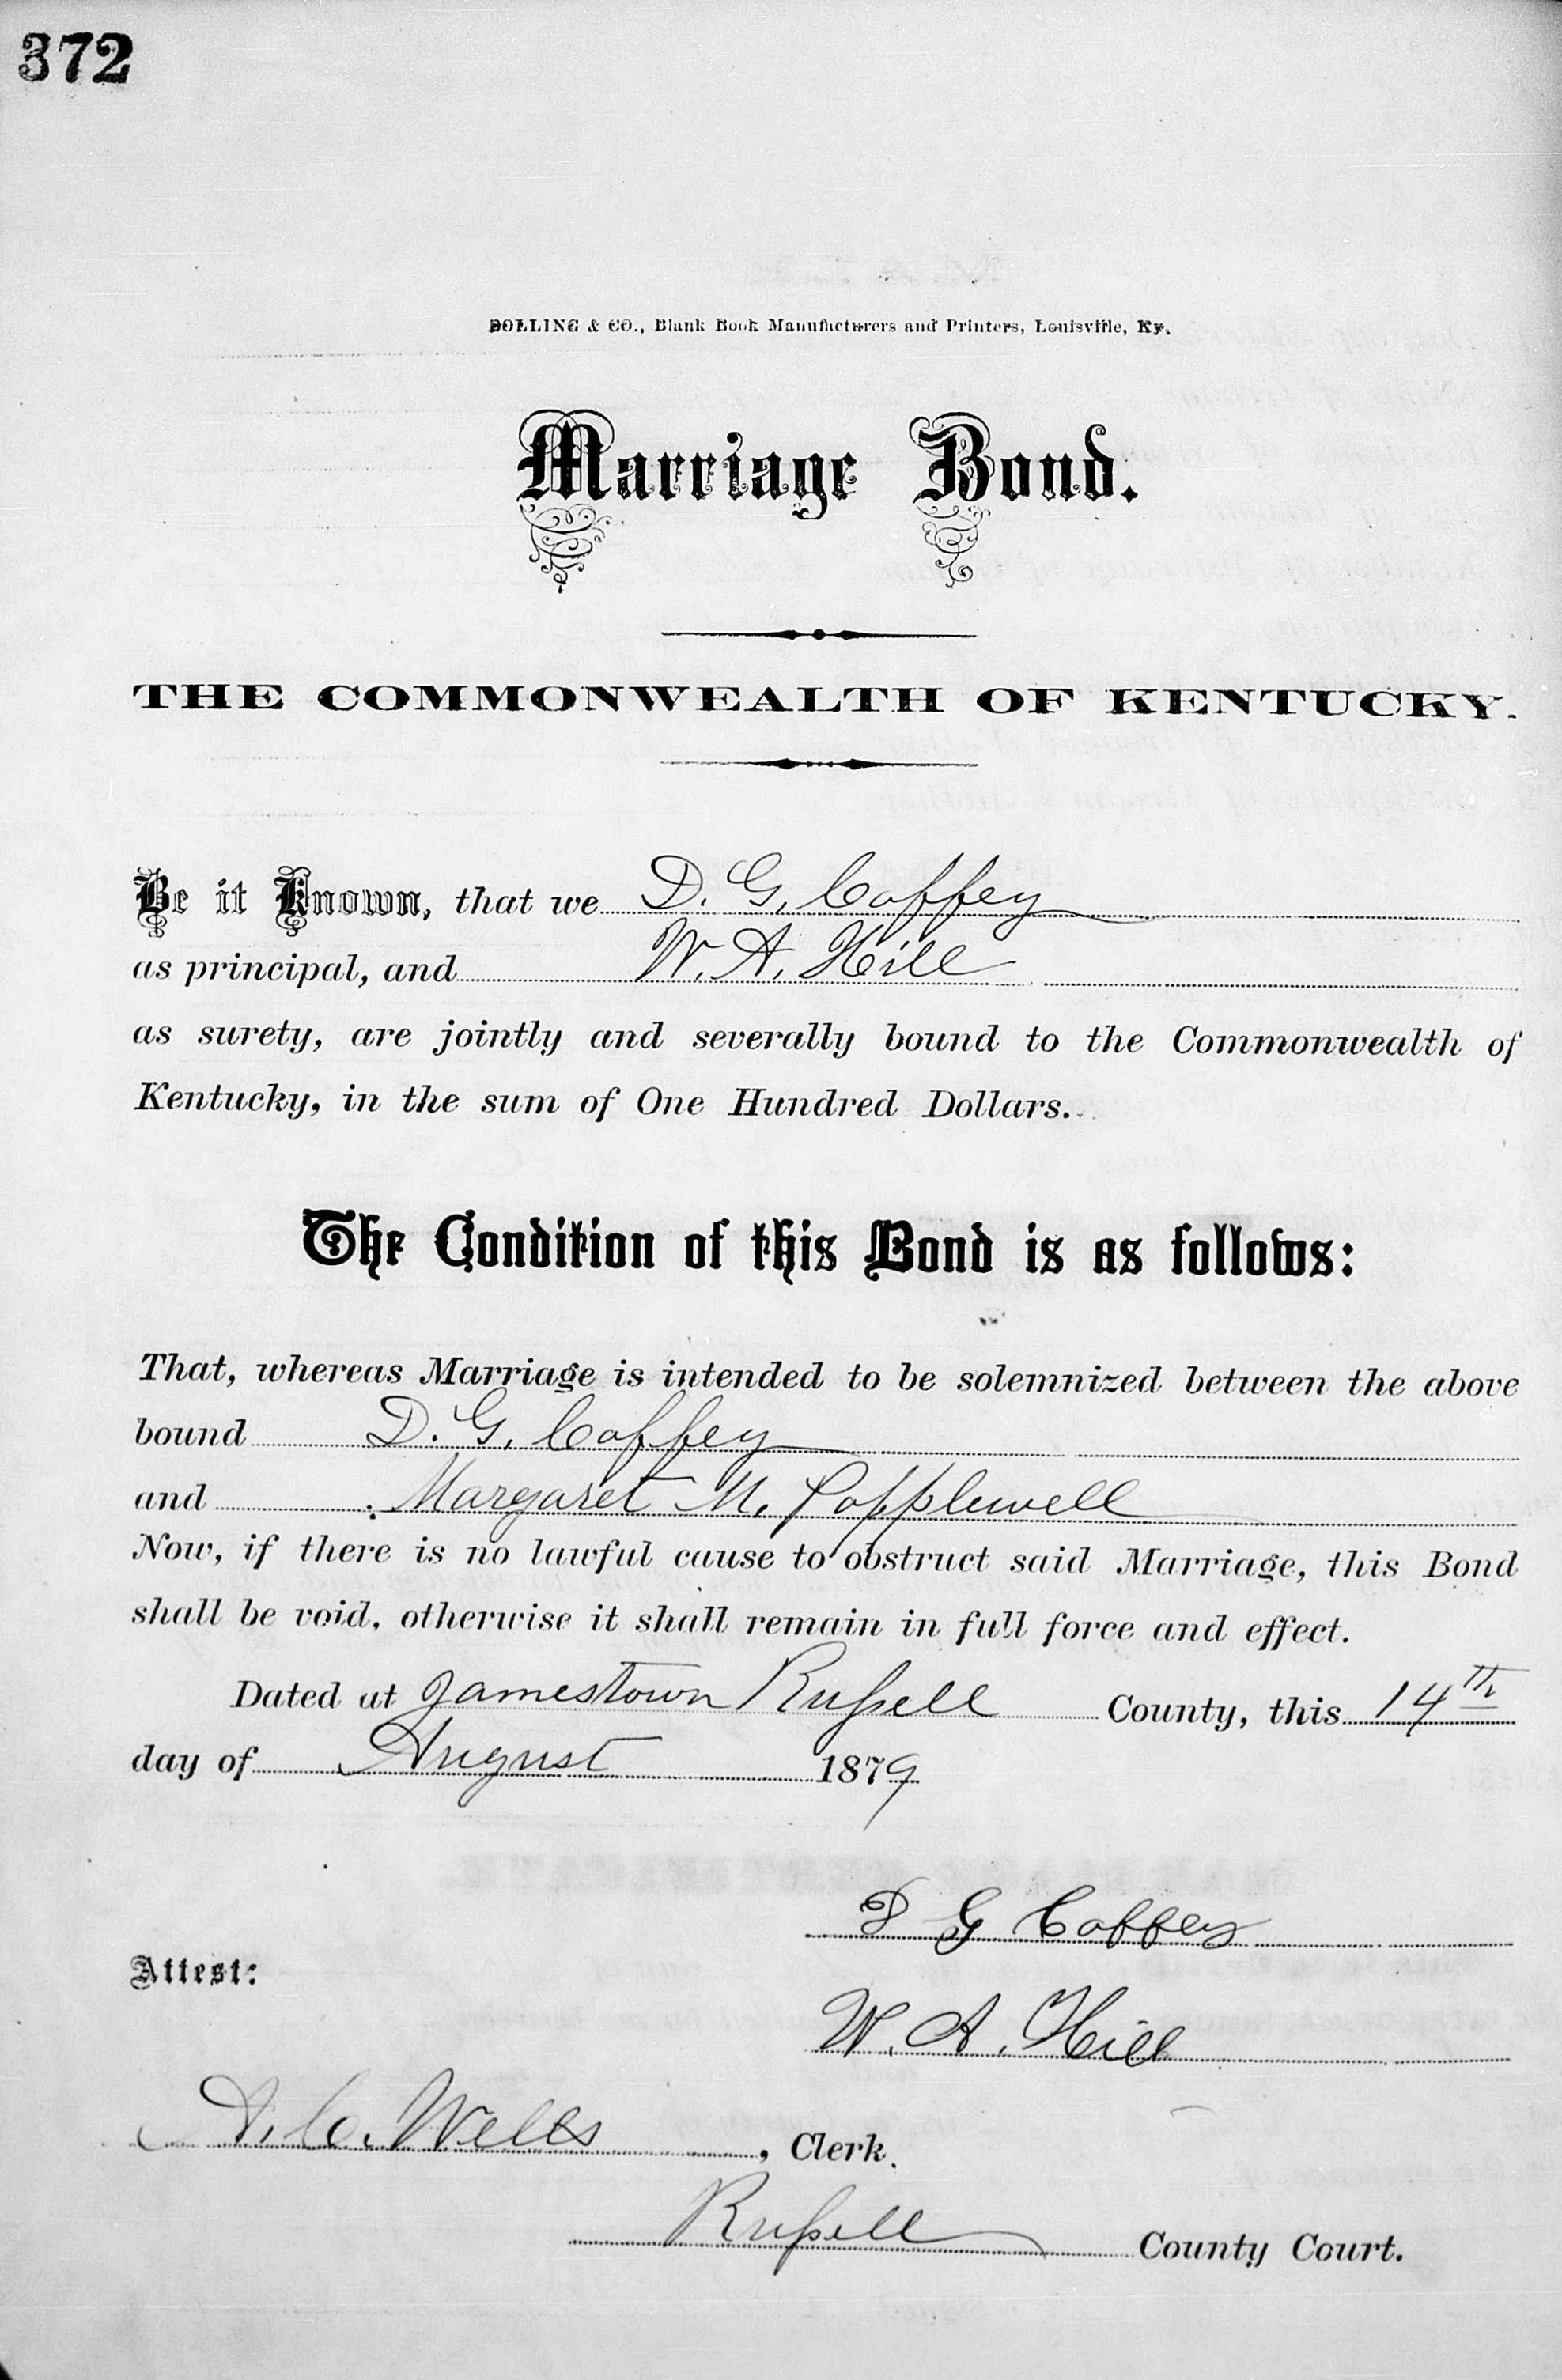 372
DOLLING & CO., Blank Book Manufacturers and Printers, Louisville, Ky.
Marriage Bond.
THE COMMONWEALTH OF KENTUCKY.
Be it Known, that we D. G. Coffey
as principal, and W. A. Hill
as surety, are jointly and severally bound to the Commonwealth of
Kentucky, in the sum of One Hundred Dollars.
The Condition of this Bond is as follows:
That, whereas Marriage is intended to be solemnized between the above
bound D. G. Coffey
and Margaret M. Popplewell
Now, if there is no lawful cause to obstruct said Marriage, this Bond
shall be void, otherwise it shall remain in full force and effect.
Dated at Jamestown Russell County, this 14th
day of August 1879
D G Coffey
Attest:
W. A. Hill
Wells, Clerk.
Russell County Court.